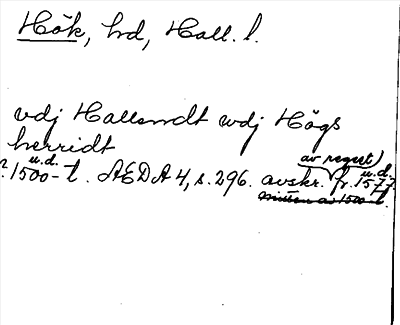 Hök, hd, Hall. l.
vdj Hallandt wdj Högs
herridt
av regest)
u.d. u.d.
? 1500-t. AEDA 4, s. 296. avskr. fr. 1577.
mitten av 1500-t.